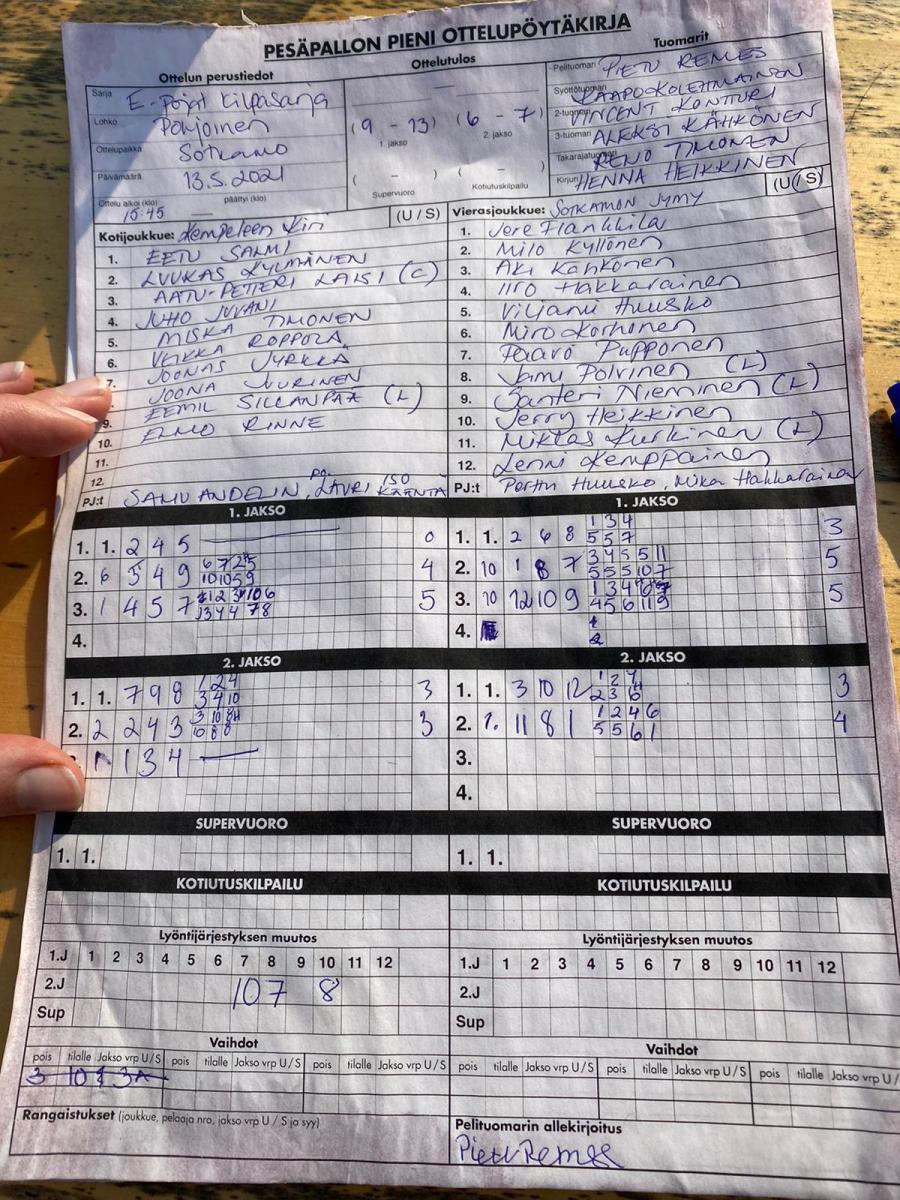 PESÄPALLON PIENI OTTELUPÖYTÄKIRJA
Ottelun perustiedot
Ottelutulos
Tuomarit
Sarja E-Pojat Kilpasarja
Lohko Pohjoinen
Ottelupaikka Sotkamo
Päivämäärä 13.5.2021
Ottelu alkoi (klo) 15:45 päättyi (klo)
(9 - 13) (6 - 7)
1. jakso 2. jakso
( - ) ( - )
Supervuoro Kotiutuskilpailu
Pelituomari PIETU REMES
Syöttötuomari KAAPO KOLEHMAINEN
2-tuomari VINCENT KONTTURI
3-tuomari ALEKSI KÄHKÖNEN
Takarajatuomari RENO TIMONEN
Kirjuri HENNA HEIKKINEN
Kotijoukkue: Kempeleen Kiri (U / S)
1. EETU SALMI
2. LUUKAS KYLMÄNEN
3. AATU-PETTERI LAISI (C)
4. JUHO JUVANI
5. MISKA TIMONEN
6. VEIKKA ROPPOLA
7. JOONAS JYRKKÄ
JOONA JUURINEN
9. EEMIL SILLANPÄÄ (L)
10. ELMO RINNE
11.
12.
PJ:t SAMU ANDELIN, LAURI ISO
Vierasjoukkue: SOTKAMON JYMY (U / S)
1. Jere Hankkila
2. Milo Kyllönen
3. Aki Kähkönen
4. Iiro Hakkarainen
5. Viljami Huusko
6. Miro Korhonen
7. Paavo Pupponen
8. Jami Polvinen (L)
9. Santeri Nieminen (L)
10. Jerry Heikkinen
11. Miklas Kurkinen (L)
12. Lenni Kemppainen
PJ:t Perttu Huusko, Mika Hakkarainen
1. JAKSO
1. 1. 2 4 5 0
2. 6 5 4 9 4
3. 1 4 5 7 5
4.
1. JAKSO
1. 1. 2 6 8 1 3 4 3
5 5 7
2. 10 1 8 7 3 4 5 5 11 5
5 5 5 10 7
3. 10 12 10 9 5
4.
2. JAKSO
1. 1. 7 9 8 1 2 4 3
3 4 10
2. 2 2 4 3 3
1 3 4
2. JAKSO
1. 1. 3 10 12 3
2. 7. 11 8 1 1 2 4 6 4
5 5 6 1
3.
4.
SUPERVUORO
1. 1.
SUPERVUORO
1. 1.
KOTIUTUSKILPAILU
KOTIUTUSKILPAILU
Lyöntijärjestyksen muutos
1.J 1 2 3 4 5 6 7 8 9 10 11 12
2.J 10 7 8
Sup
Lyöntijärjestyksen muutos
1.J 1 2 3 4 5 6 7 8 9 10 11 12
2.J
Sup
Vaihdot
pois tilalle Jakso vrp U / S pois tilalle Jakso vrp U / S pois tilalle Jakso vrp U / S
Vaihdot
pois tilalle Jakso vrp U / S pois tilalle Jakso vrp U / S pois tilalle Jakso vrp U /
Rangaistukset (joukkue, pelaaja nro, jakso vrp U / S ja syy)
Pelituomarin allekirjoitus
Pietu Remes